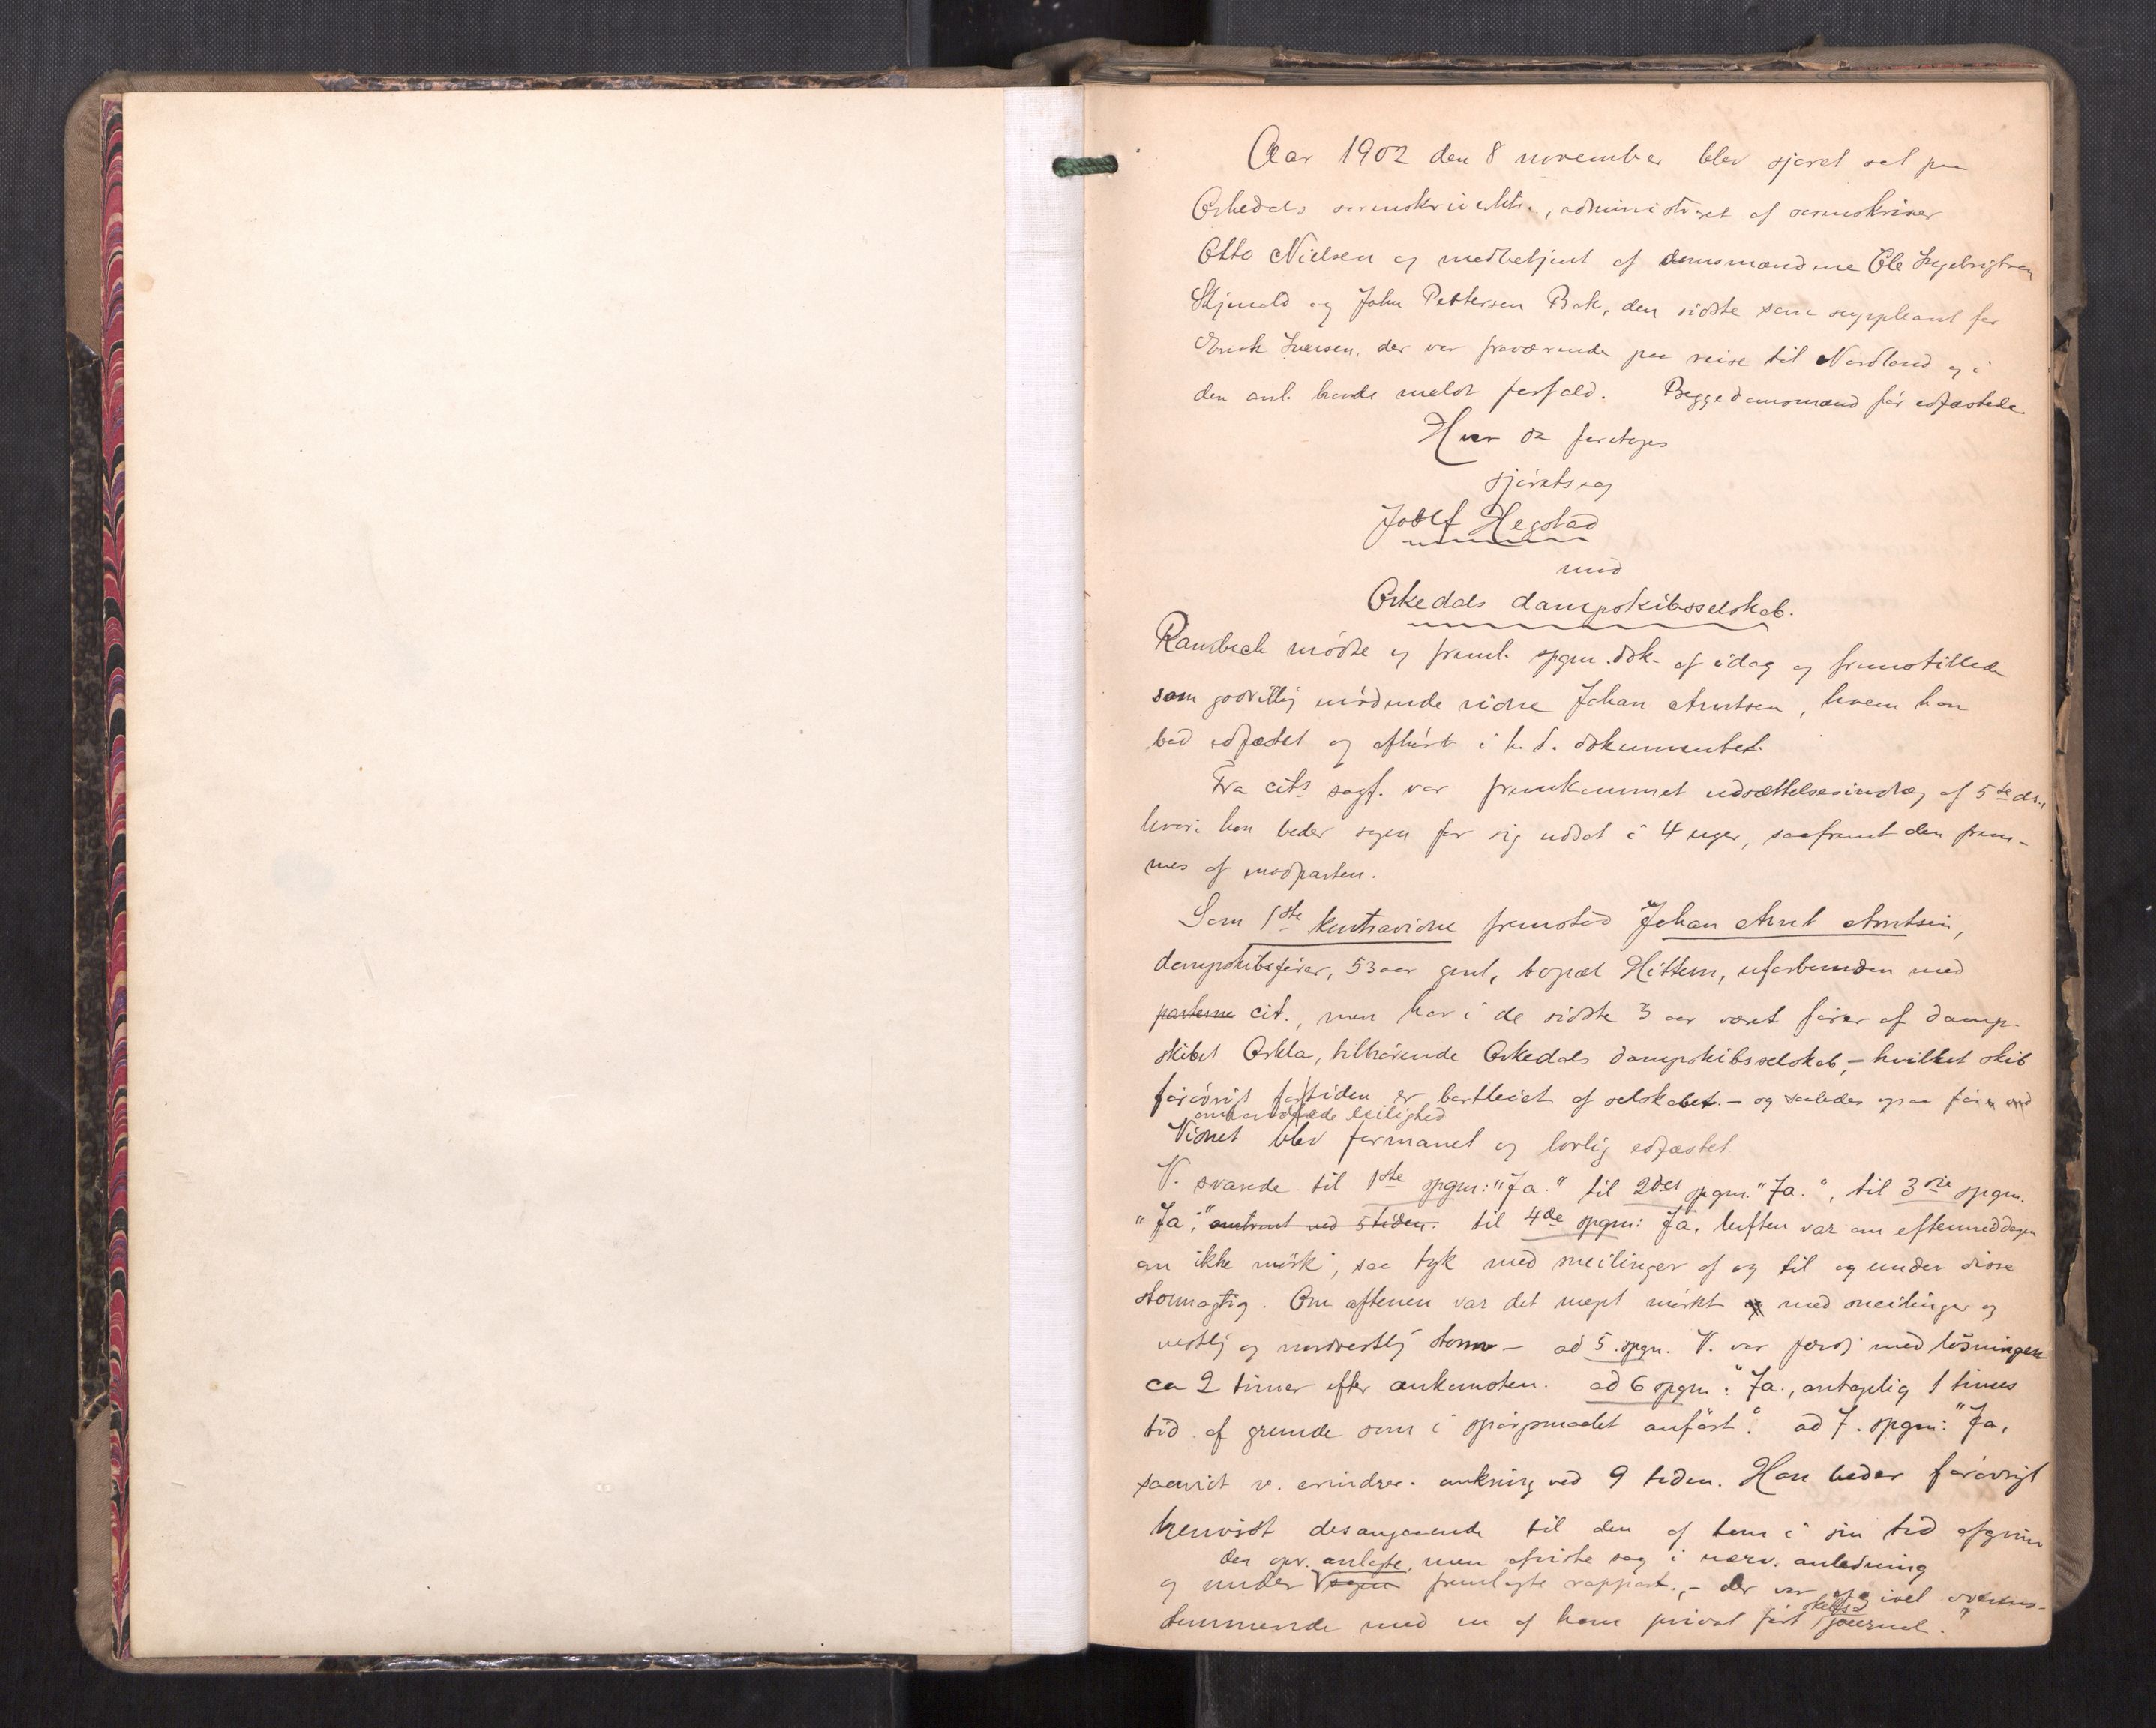 Aar 1902 den 8 november blev sjøret sat paa
Orkedals sorenskriverktr., administreret af sorenskriver
Otto Nielsen og medbetjent af domsmændene Ole Ingebrigtsen
Skjenald og John Pettersen Bak, den sidste som suppleant for
Erick Iversen, der var fraværende paa reise til Nordland og i
den anl. havde meldt forfald. Begge domsmænd før edfæstede.
Hvor da foretoges
sjøretssag
Jodlf Hegstad
mod
Orkedals dampskibsselskab.
Ramsbech mødte og freml. spgm. dok. af idag og fremstillede
som godvillig mødende vidne Johan Arntsen, hvem han
bad edfæstet og afhørt i h. t. dokumentet.
Fra cits sagf. var fremkommet udsættelsesindlæg af 5te ds.,
hvori han beder sagen for sig udsat i 4 uger, saafremt den frem-
mes af modparten.
Som 1ste kontravidne fremstod Johan Arnt Arntsen,
dampskibsfører, 53 aar gml, bopæl Hittern, uforbunden med
parterne cit., men har i de sidste 3 aar været fører af damp-
skibet Orkla, tilhørende Orkedals dampskibsselskab, - hvilket skib
forøvrigt for tiden er bortleiet af selskabet. - og saaledes ogsaa før ved
omhandlede leilighed
Vidnet blev formanet og lovlig edfæstet
V. svarede til 1ste spgm: "Ja." til 2det spgm. "Ja.", til 3die spgm.
"Ja", omtrent ved 5 tiden. til 4de spgm: Ja, luften var om eftermiddagen
om ikke mørk, saa tyk med sneilinger af og til og under disse
stormagtig. Om aftenen var det meget mørkt og med sneilinger og
vestlig og nordvestlig storm - ad 5. spgm. V. var færdig med losningen
ca 2 timer efter ankomsten. ad 6 spgm: "Ja., antagelig 1 times
tid af grunde som i spørgsmaalet anført." ad 7. spgm: "Ja,
saavidt v. erindrer. omkring ved 9 tiden. Han beder forøvrigt
henvist desangaaende til den af ham i sin tid afgivne
den opr. anlagte, men afviste sag i nærv. anledning
og under sagen fremlagte rapport, - der var afgivet overens-
skibs
stemmende med en af ham privat ført journal."